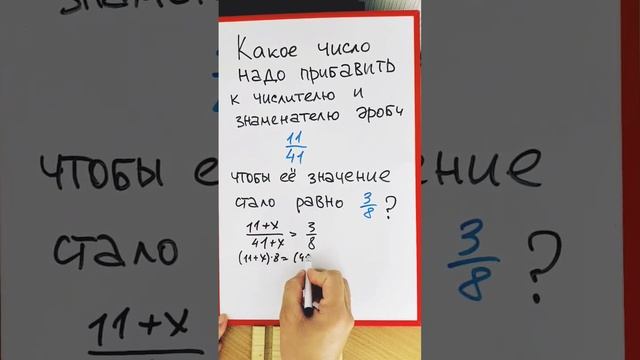 Какое число
надо прибавить
к числителю и
знаменателю дроби
11
41
чтобы её значение
стало равно 3/8 ?
11+x / 41+x = 3/8
(11+x)·8=(4